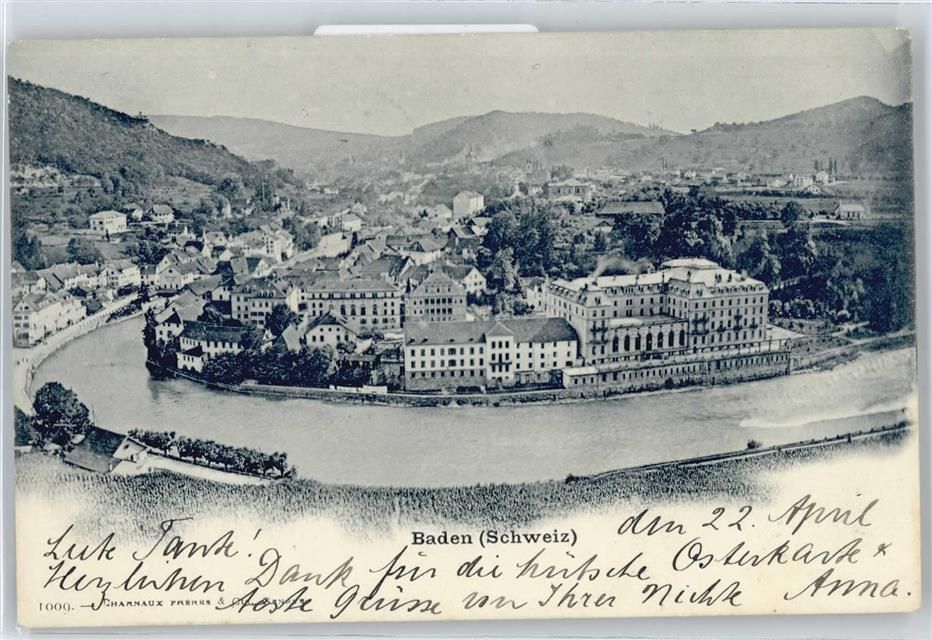 Baden (Schweiz)
den 22. April
Lute Tante!
Herzlichen Dank für die hübsche Osterkarte &
beste Grüsse von Ihrer Nichte Anna.
1009. — CHARNAUX FRÈRES & Co., GENÈVE